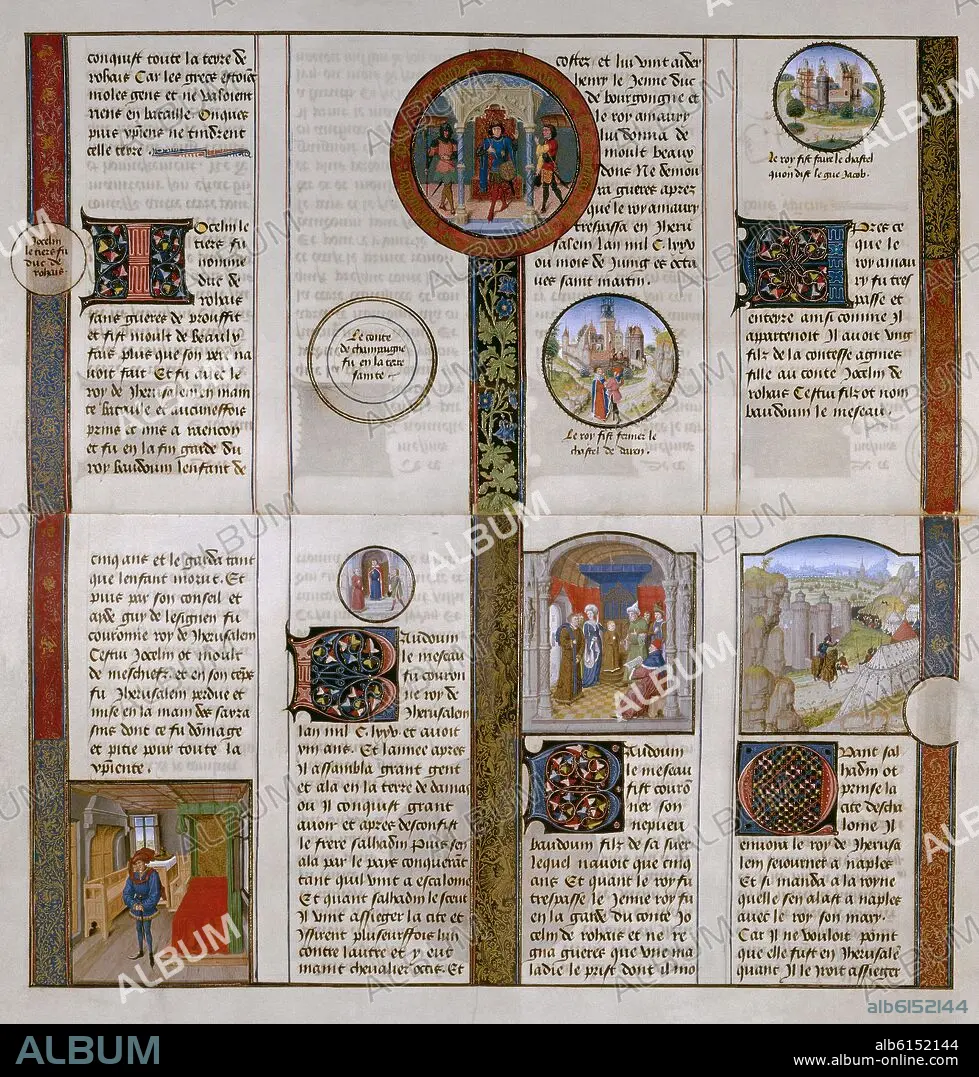 conquist toute la terre de
rohais Car les grecs estoient
moles gens et ne valoient
riens en bataille Onques
puis xpiens ne tindrent
celle terre
Jocelin
le tiers fu
duc de
rohais
Jocelin le
tiers fu
nomme
duc de
rohais
sans gueres de prouffit
et fist moult de beaulx
fais plus que son pere na
uoit fait Et fu avec le
roy de Jherusalem en main
te bataille et aucuneffois
prins et mis a raencon
et fu en la fin garde du
roy baudouin lenfant de
Le conte
de champaigne
fu en la terre
sainte
costez et lui vint aider
henry le Jenne duc
de bourgongne et
le roy amaury
lui donna de
moult beaux
dons Ne demou
ra gueres aprez
que le roy amaury
trespassa en Jheru
salem lan mil C. lxxv
ou mois de Juing es octa
ues saint martin.
Le roy fist fermer le
chastel de daron.
Le roy fist faire le chastel
quon dist le gue Jacob.
Apres ce
que le
roy amau
ry fu tres
passe et
enterre ainsi comme Il
appartenoit Il auoit vng
filz de la contesse agnes
fille au conte Jocelin de
rohais Cestui filz ot nom
baudouin le meseau.
cinq ans et le garda tant
que lenfant morut. Et
puis par son conseil et
ayde guy de lesignen fu
couronne roy de Jherusalem
Cestui Jocelin ot moult
de meschiefz. et en son teps
fu Jherusalem perdue et
mise en la main des sarra
sins dont ce fu dommage
et pitie pour toute la
xpiente.
Baudouin
le meseau
fu couron
ne roy de
Jherusalem
lan mil C. lxxv et auoit
xiii ans. Et lannee apres
Il assembla grant gent
et ala en la terre de damas
ou Il conquist grant
auoir et apres desconfist
le frere salhadin Puis sen
ala par le pays conquerant
tant quil vint a escalone
Et quant salhadin le sceut
Il vint assieger la cite et
Issirent pluseurs fois lun
contre lautre et y eut
maint chevalier occis. Et
Baudouin
le meseau
fist couron
ner son
nepueu
baudouin filz de sa suer
lequel nauoit que cinq
ans Et quant le roy fu
trespasse le Jenne roy fu
en la garde du conte Jo
celin de rohais et ne re
gna gueres que vne ma
ladie le prist dont il mo
Quant sal
hadin ot
prinse la
cite desca
lonne Il
enuoia le roy de Jherusa
lem seiourner a naples
Et si manda a la royne
quelle sen alast a naples
avec le roy son mary.
Car Il ne vouloit point
que elle fust en Jherusalem
quant Il le yroit assieger
ALBUM
alb6152144
ALBUM
alb6152144
www.album-online.com